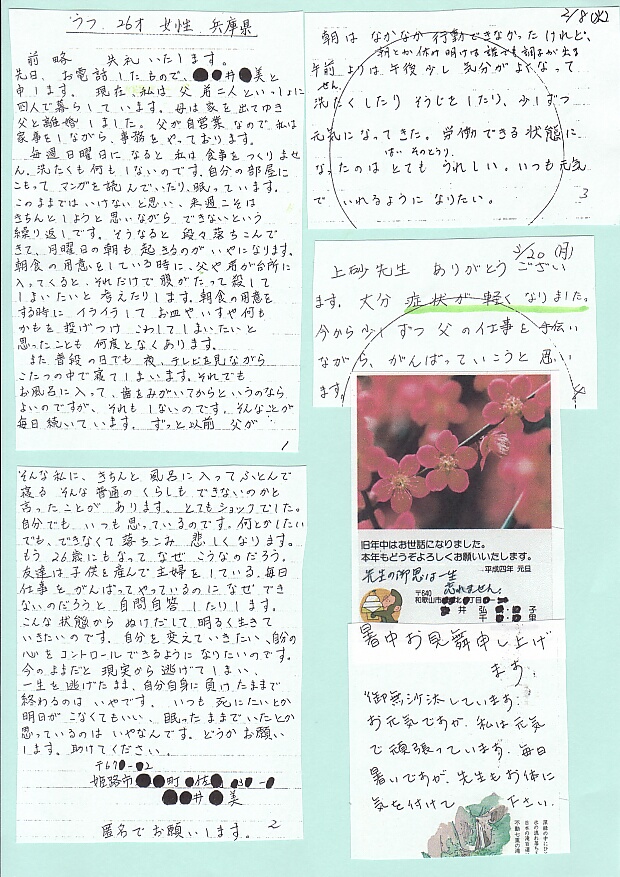 うつ 26才 女性 兵庫県
前略 失礼いたします。
先日、お電話したもので、●●井●美と
申します。現在、私は父、弟二人といっしょに
四人で暮らしています。母は家を出てゆき
父と離婚しました。父が自営業なので私は
家事をしながら、事務をやっております。
毎週日曜日になると私は食事をつくりませ
ん。洗たくも何もしないのです。自分の部屋に
こもってマンガを読んでいたり、眠っています。
このままではいけないと思い、来週こそは
きちんとしようと思いながらできないという
繰り返しです。そうなると段々落ちこんで
きて、月曜日の朝も起きるのがいやになります。
朝食の用意をしている時に、父や弟が台所に
入ってくると、それだけで腹がたって殺して
しまいたいと考えたりします。朝食の用意を
する時にイライラしてお皿やいすや何も
かもを投げつけこわしてしまいたいと
思ったことも何度となくあります。
また普段の日でも、夜、テレビを見ながら
こたつの中で寝てしまいます。それでも
お風呂に入って、歯をみがいてからというのなら
よいのですが、それもしないのです。そんなことが
毎日続いています。ずっと以前父が
1
そんな私に、きちんと風呂に入ってふとんで
寝る そんな普通のくらしもできないのかと
言ったことがあります。とてもショックでした。
自分でもいつも思っているのです。何とかしたい
でも、できなくて落ちこみ悲しくなります。
もう26歳にもなってなぜこうなのだろう。
友達は子供を産んで主婦をしている。毎日
仕事をがんばってやっているのになぜでき
ないのだろうと、自問自答したりします。
こんな状態からぬけだして、明るく生きて
いきたいのです。自分を変えていきたい、自分の
心をコントロールできるようになりたいのです。
今のままだと現実から逃げてしまい、
一生を逃げたまま、自分自身に負けたままで
終わるのはいやです。いつも死にたいとか
明日がこなくてもいい、眠ったままでいたいとか
思っているのはいやなんです。どうかお願い
します。助けてください。
〒67●-●2
姫路市●●町●佐●●3●-●
●●井●美
匿名でお願いします。 2
2/8(水)
朝はなかなか行動できなかったけれど、
朝とか休の明けは誰でも調子が出ま
せん
午前よりは午後少し気分がよくなって
洗たくしたりそうじしたり、少しずつ
元気になってきた。労働できる状態に
はい そのとうり
なったのはとてもうれしい。いつも元気
でいれるようになりたい。
3
3/20(月)
上砂先生 ありがとうござい
ます。大分症状が軽くなりました。
今から少しずつ父の仕事を手伝い
ながら、がんばっていこうと思い
ます。
4
旧年中はお世話になりました。
本年もどうぞよろしくお願いいたします。
平成四年 元旦
先生の御恩は一生
忘れません。
〒640
和歌山市●●北●丁目●-●
●井 弘●・●子
千●・●里
暑中お見舞申し上げ
ます。
御無沙汰しています。
お元気ですか。私は元気
で頑張っています。毎日
暑いですが、先生もお体に
気を付けて下さい。